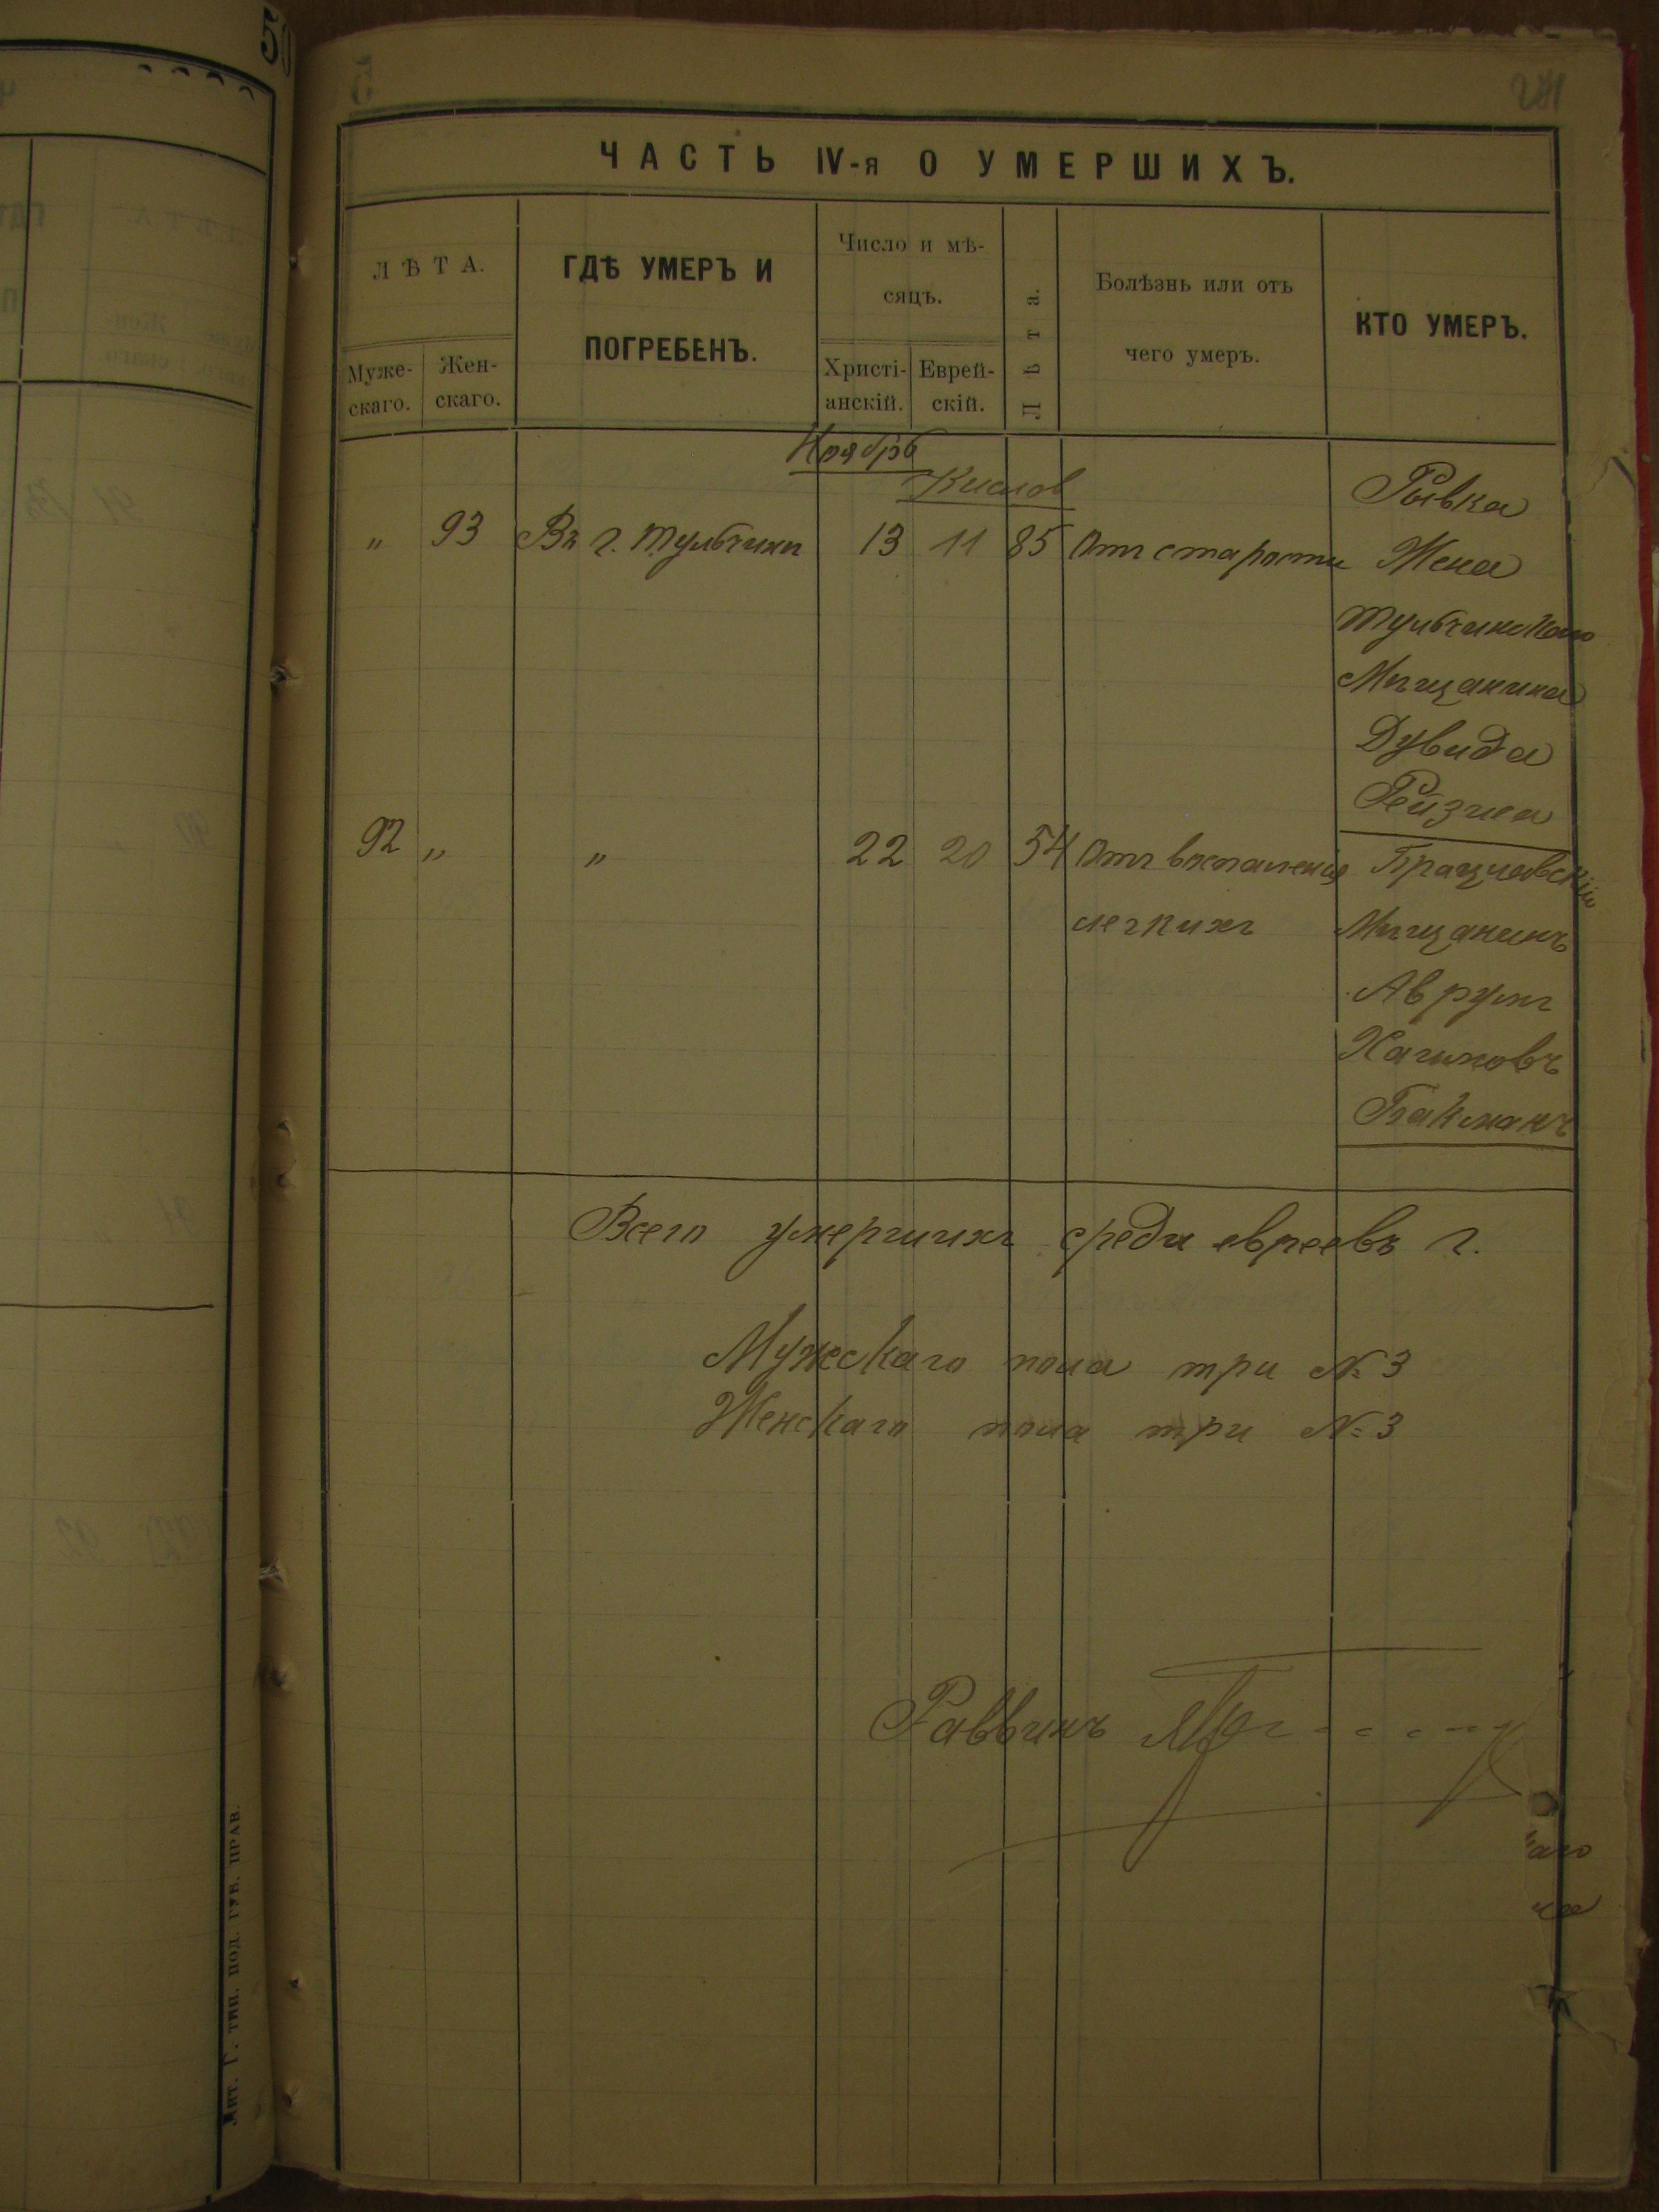 50
241
ЧАСТЬ IV-я О УМЕРШИХЪ.
ЛѢТА.
Муже-
скаго.
Жен-
скаго.
ГДѢ УМЕРЪ И
ПОГРЕБЕНЪ.
Число и мѣ-
сяцъ.
Христі-
анскій.
Еврей-
скій.
Лѣта.
Болѣзнь или отъ
чего умеръ.
КТО УМЕРЪ.
Ноябрь
Кислов
„ 93 Въ г. Тульчинѣ 13 11 85 Отъ старости
Рывка
Жена
Тульчинскаго
Мѣщанина
Дувида
92 „ „ 22 20 54 Отъ воспаленія
легкихъ
Брацлавскій
Мѣщанинъ
Аврумъ
Хаимовъ
Бакманъ
Всего умершихъ среди евреевъ г.
Мужескаго пола три № 3
Женскаго пола три № 3
Раввинъ
Лит. Г. тип. под. губ. прав.